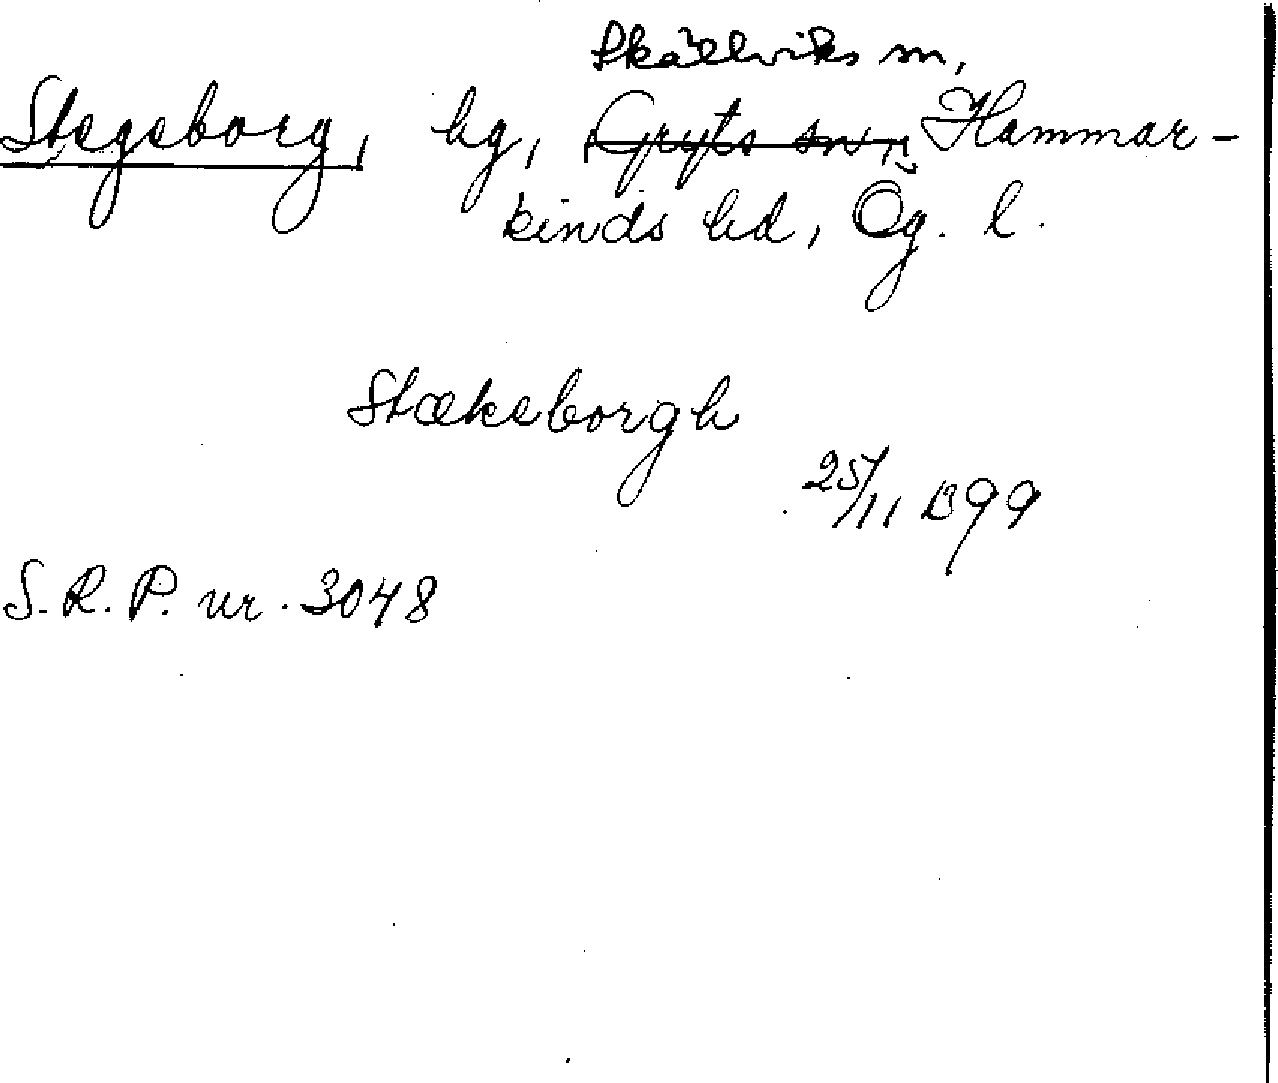 Skällviks sn,
Stegeborg, hg, Gryts sn, Hammar-
kinds hd, Ög. l.
Stækeborgh
25/11 1399
S.R.P. nr. 3048